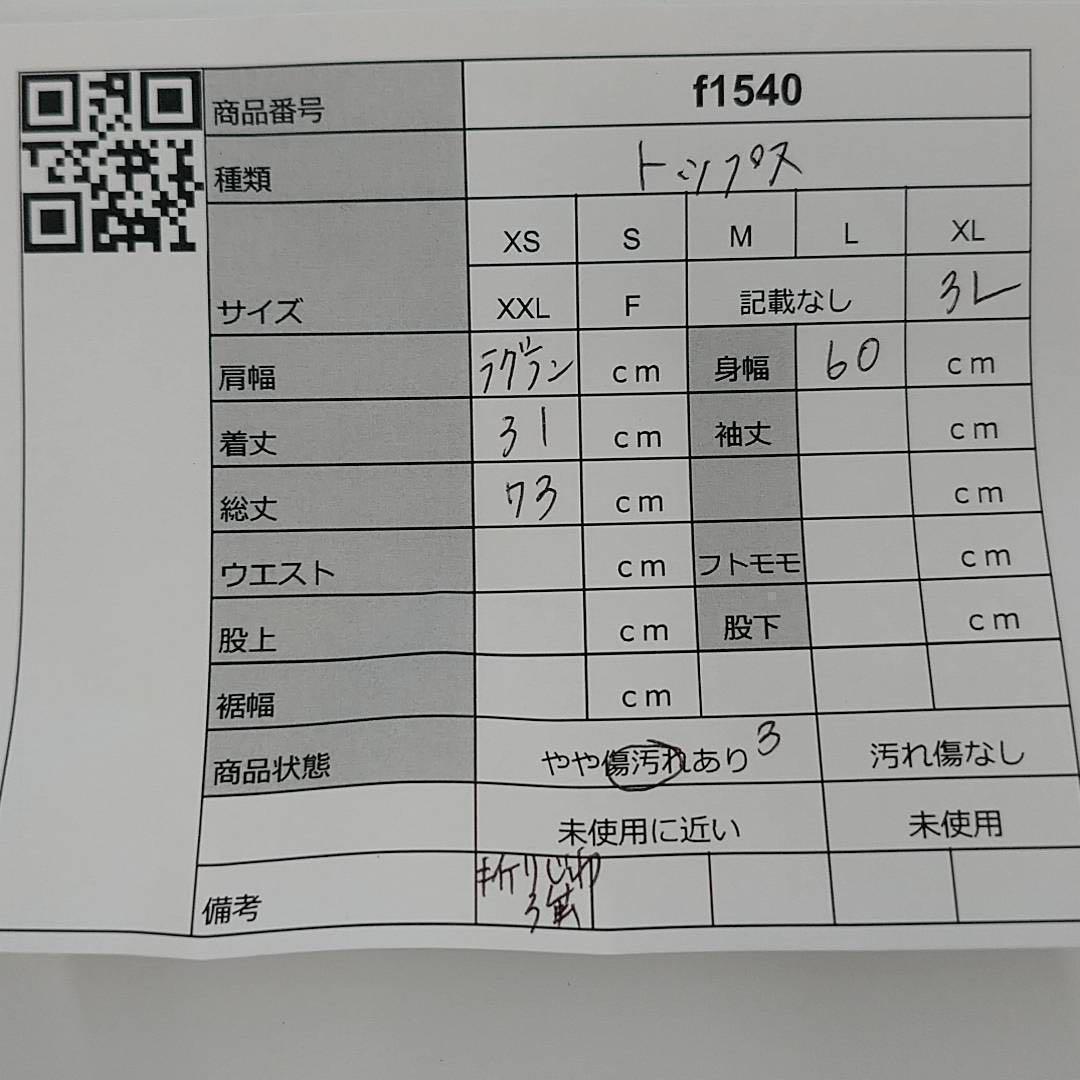 商品番号 f1540
種類 トップス
XS S M L XL
サイズ XXL F 記載なし 3L
肩幅 ラグラン cm 身幅 60 cm
着丈 31 cm 袖丈 cm
総丈 73 cm cm
ウエスト cm フトモモ cm
股上 cm 股下 cm
裾幅 cm
商品状態 やや傷汚れあり 3 汚れ傷なし
未使用に近い 未使用
備考 折りじわ